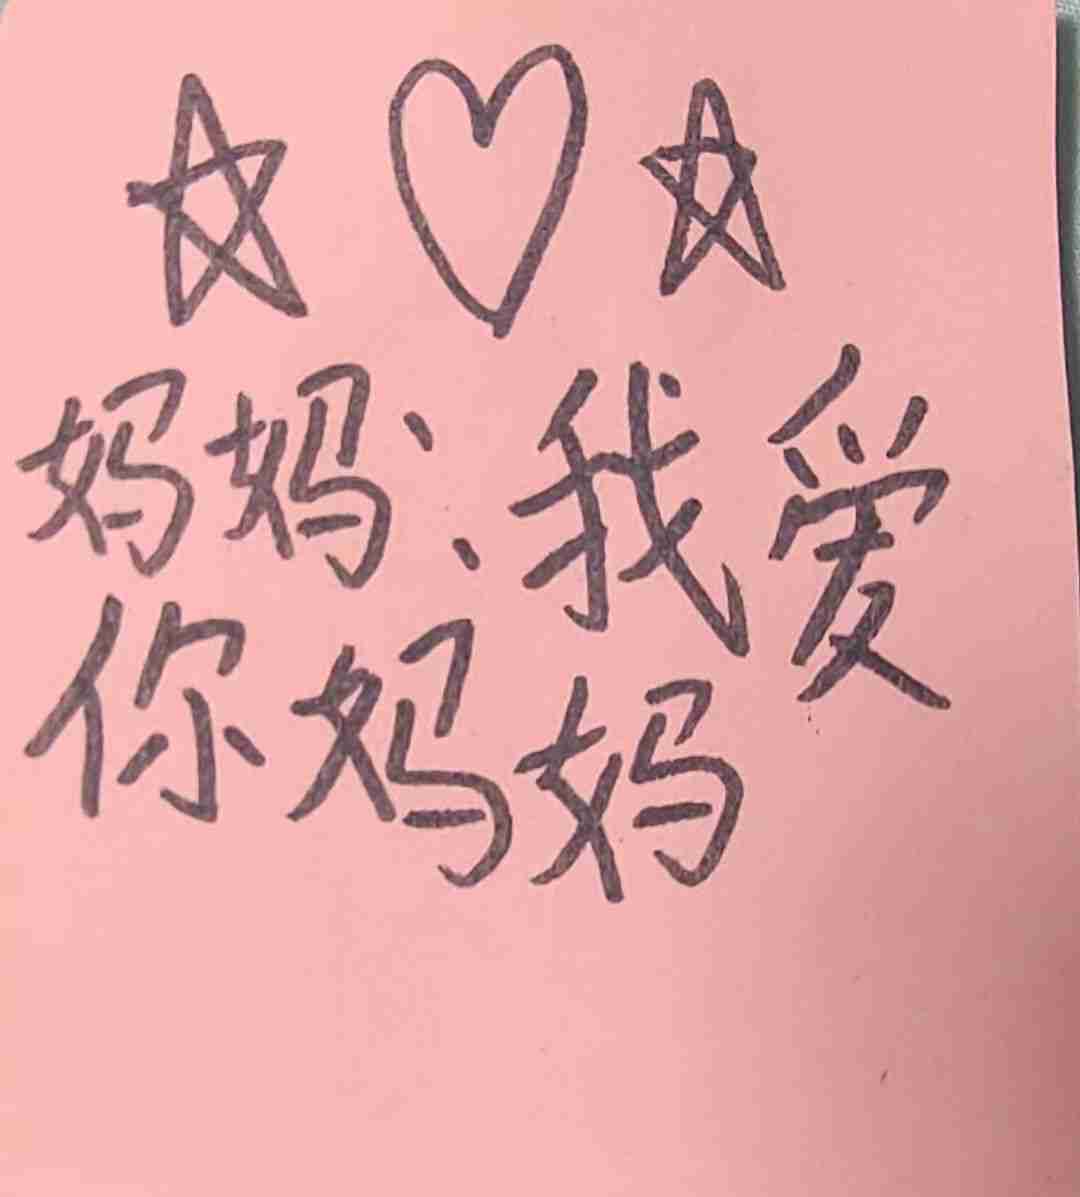 妈妈：我爱
你妈妈